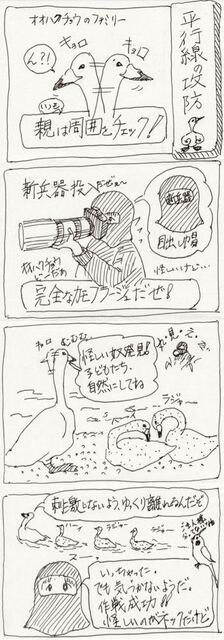 平行線の攻防
オオハクチョウのファミリー
ん?!
キョロ
キョロ
親は周囲をチェック!
新兵器投入だぜぇ〜
新兵器
目出し帽
怪しいけど…
完全なカモフラージュだぜ!
キョロ
怪しい奴発見!
子どもたち、
自然にしてね
ラジャー
刺激しないよう、ゆっくり離れるんだぞ
ラジャー
ラジャー
スーッ
いっちゃった。
でも気づかないようだ。
作戦成功!!
怪しいのがネックだけど